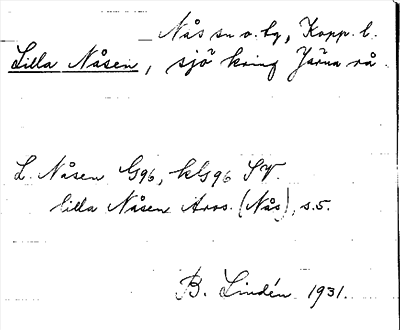 Nås sn o. by, Kopp. l.
Lilla Nåsen, sjö kring Järna rå.
L. Nåsen G96, kG96 SV
lilla Nåsen Avos. (Nås), s. 5.
B. Lindén 1931.